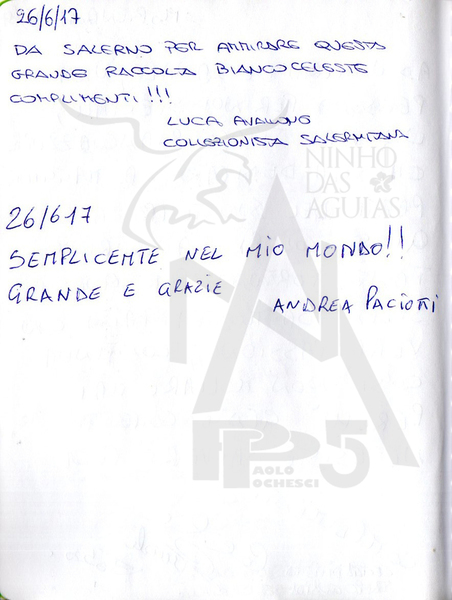 26/6/17
DA SALERNO PER AMMIRARE QUESTA
GRANDE RACCOLTA BIANCOCELESTE
COMPLIMENTI!!!
LUCA AVALLONE
COLLEZIONISTA SALERNITANA
NINHO
DAS
AGUIAS
26/617
SEMPLICEMTE NEL MIO MONDO!!
GRANDE E GRAZIE
ANDREA PACIOTTI
PP5
PAOLO
POCHESCI